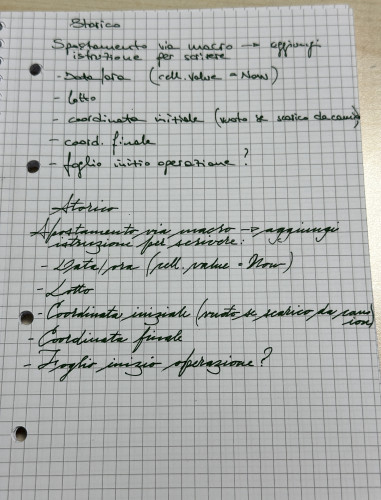 Storico
Spostamento via macro → aggiungi
istruzione per scrivere
- Data/ora (cell.value = Now)
- lotto
- coordinata initiale (vuoto se scarico da camion
- coord. finale
- foglio initio operazione?
Storico
Spostamento via macro → aggiungi
istruzione per scrivere:
- Data/ora (cell.value = Now)
- Lotto
- Coordinata iniziale (vuoto se scarico da cam
ion)
- Coordinata finale
- Foglio inizio operazione?